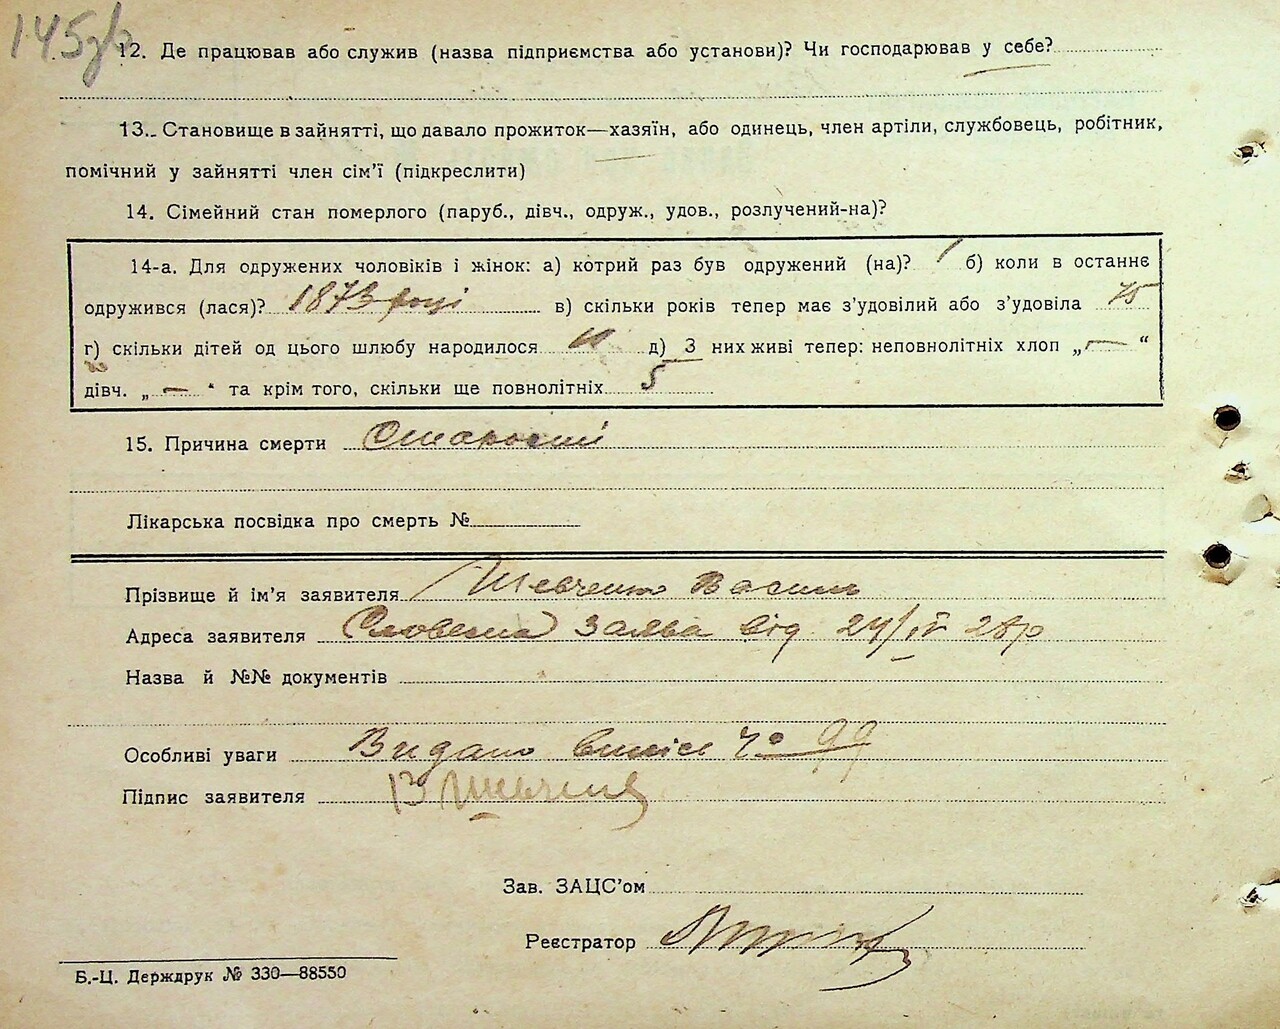 145зв
12. Де працював або служив (назва підприємства або установи)? Чи господарював у себе?
13. Становище в зайнятті, що давало прожиток—хазяїн, або одинець, член артіли, службовець, робітник,
помічний у зайнятті член сім'ї (підкреслити)
14. Сімейний стан померлого (паруб., дівч., одруж., удов., розлучений-на)?
14-а. Для одружених чоловіків і жінок: а) котрий раз був одружений (на)? 1 б) коли в останнє
одружився (лася)? 1873 році в) скільки років тепер має з'удовілий або з'удовіла 75
г) скільки дітей од цього шлюбу народилося 11 д) З них живі тепер: неповнолітніх хлоп „—“
дівч. „—“ та крім того, скільки ще повнолітніх 5
15. Причина смерти Старості
Лікарська посвідка про смерть №
Прізвище й ім'я заявителя Шевченко Василь
Адреса заявителя заява від 24/IV 28р
Назва й №№ документів
Особливі уваги Видано випис № 99
Підпис заявителя В Шевченко
Зав. ЗАЦС'ом
Реєстратор
Б.-Ц. Держдрук № 330—88550